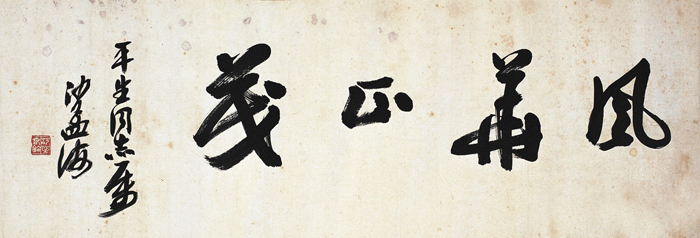 風華正茂
平生同志属
沙孟海